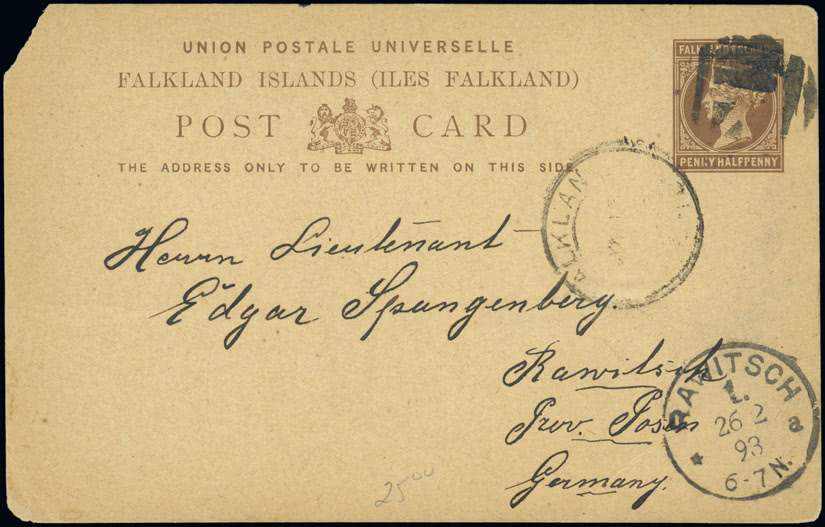 UNION POSTALE UNIVERSELLE
FALKLAND ISLANDS (ILES FALKLAND)
POST CARD
THE ADDRESS ONLY TO BE WRITTEN ON THIS SIDE.
FALKLAND ISLANDS
PENNY HALFPENNY
Herrn Lieutenant
Edgar Spangenberg.
Rawitsch
Prov. Posen
Germany.
RAWITSCH
26 2
93
6-7N.
a
2500